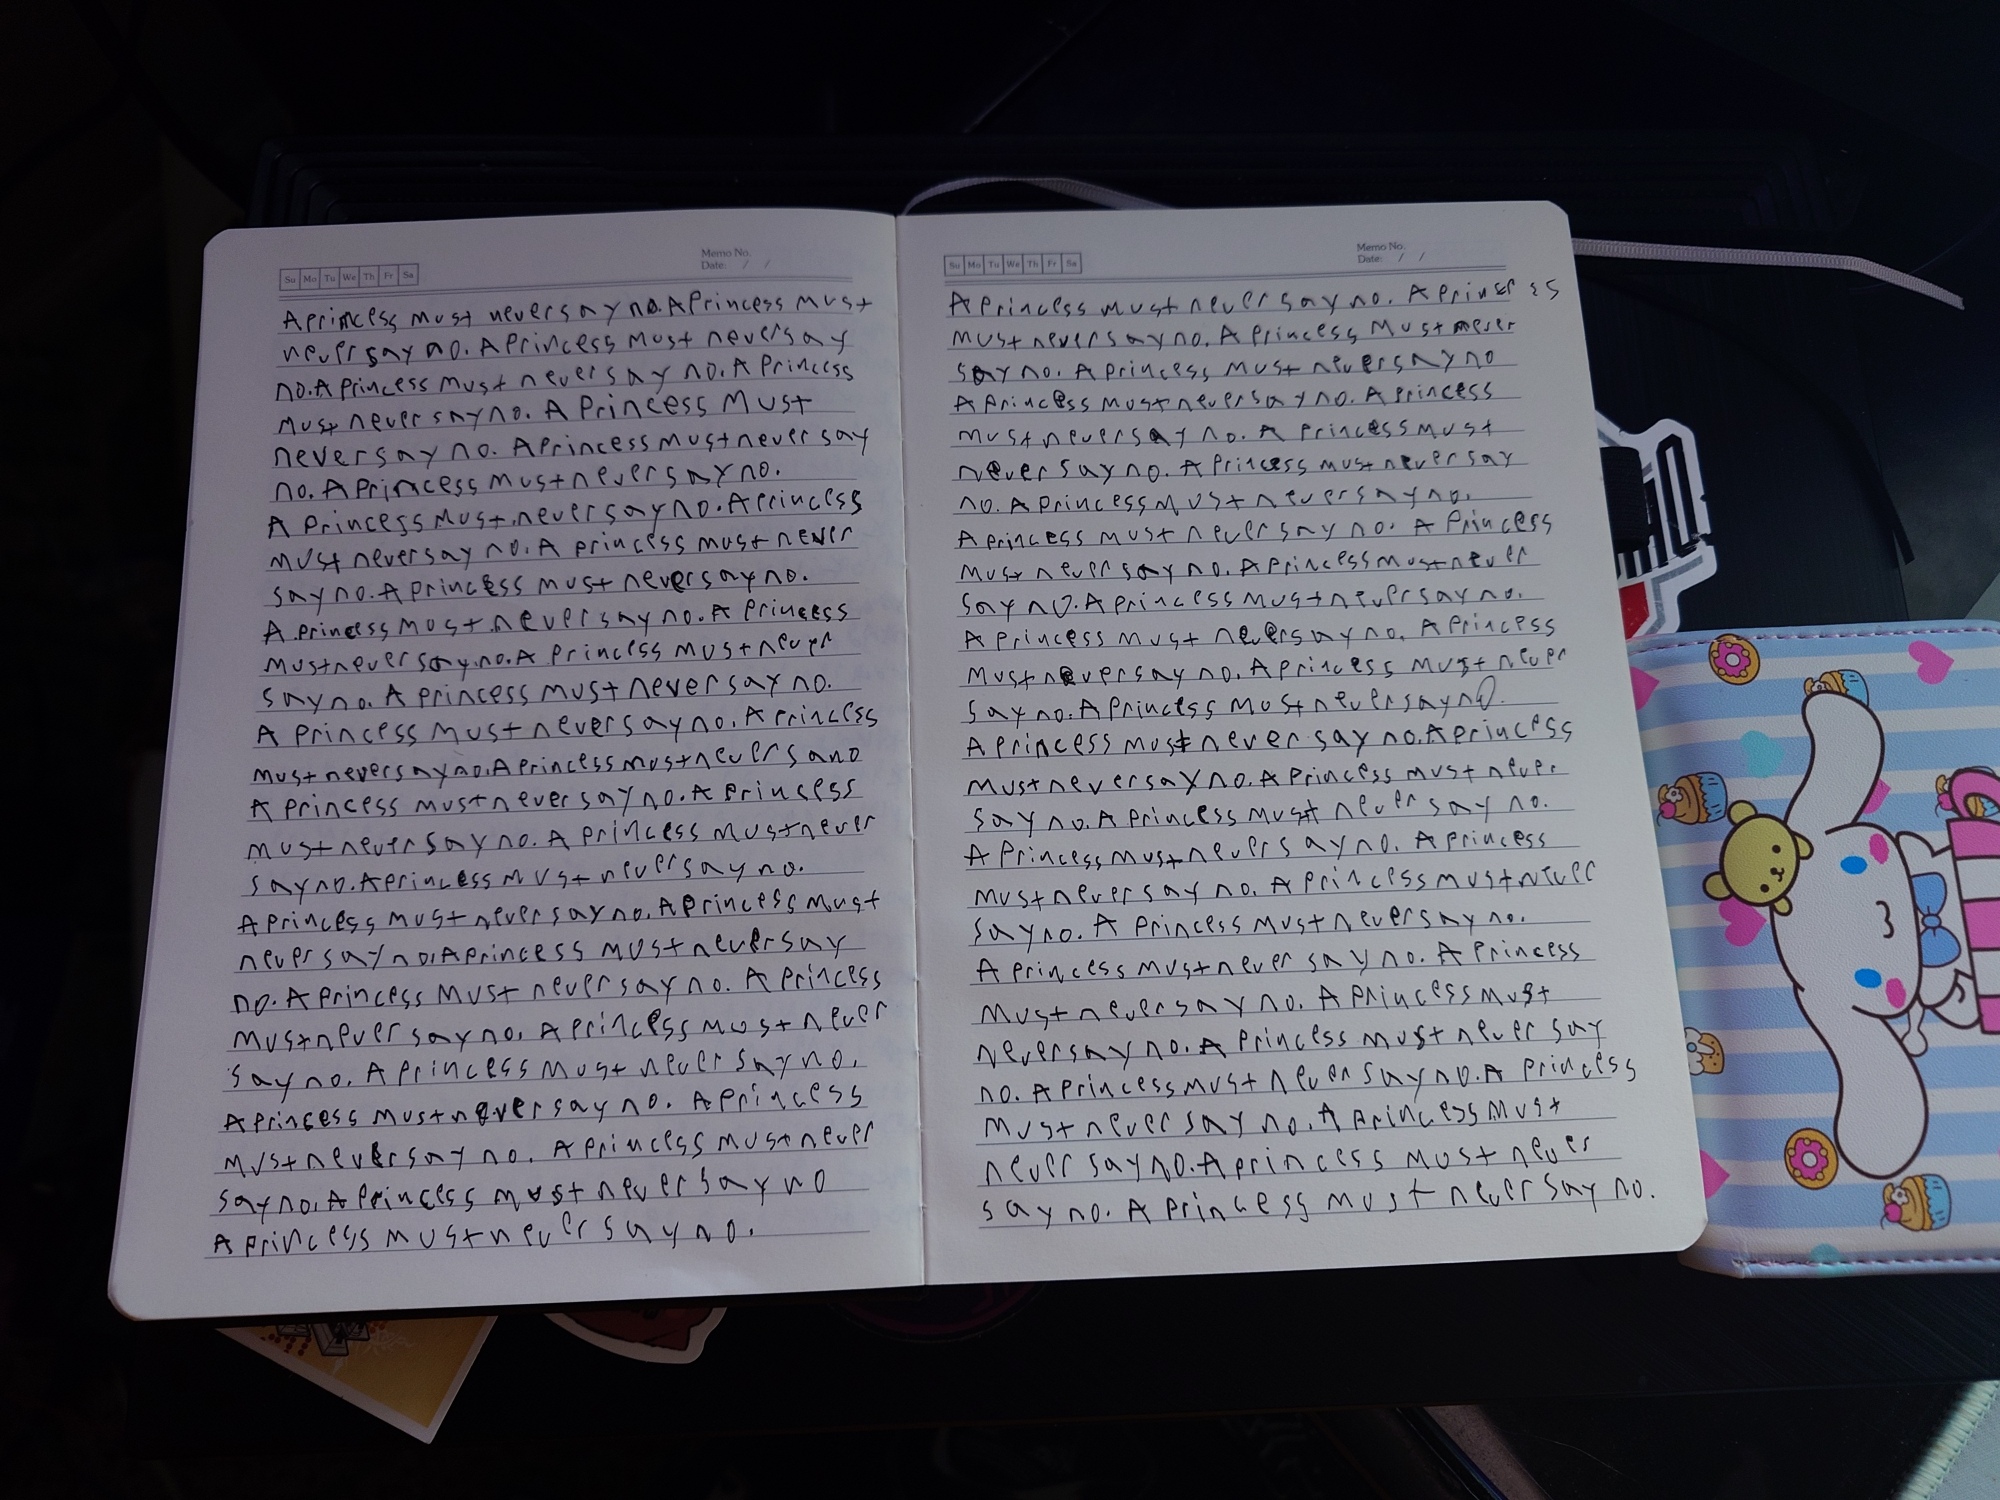 Su Mo Tu We Th Fr Sa
Memo No.
Date: / /
A princess must never say no. A Princess must
never say no. A Princess must never say
no. A Princess must never say no. A Princess
must never say no. A Princess Must
never say no. A Princess must never say
no. A Princess must never say no.
A Princess must never say no. A Princess
must never say no. A princess must never
say no. A Princess must never say no.
A princess must never say no. A Princess
must never say no. A Princess must never
say no. A Princess must never say no.
A Princess must never say no. A Princess
must never say no. A Princess must never s ano
A Princess must never say no. A Princess
must never say no. A Princess must never
say no. A Princess must never say no.
A Princess must never say no. A Princess must
never say no. A Princess must never say
no. A Princess must never say no. A Princess
must never say no. A Princess must never
say no. A Princess must never say no.
A Princess must never say no. A Princess
must never say no. A Princess must never
say no. A Princess must never say no
A Princess must never say no.
Su Mo Tu We Th Fr Sa
Memo No.
Date: / /
A Princess must never say no. A
must never say no. A Princess must never
say no. A Princess must never say no
A Princess must never say no. A Princess
must never say no. A Princess must
never say no. A Princess must never say
no. A Princess must never say no.
A Princess must never say no. A Princess
must never say no. A Princess must never
say no. A Princess must never say no.
A Princess must never say no. A Princess
must never say no. A Princess must never
say no. A Princess must never say no.
A Princess must never say no. A Princess
must never say no. A Princess must never
say no. A Princess must never say no.
A Princess must never say no. A Princess
must never say no. A Princess must never
say no. A Princess must never say no.
A Princess must never say no. A Princess
must never say no. A Princess must
never say no. A Princess must never say
no. A Princess must never say no. A Princess
must never say no. A Princess must
never say no. A princess must never
say no. A Princess must never say no.